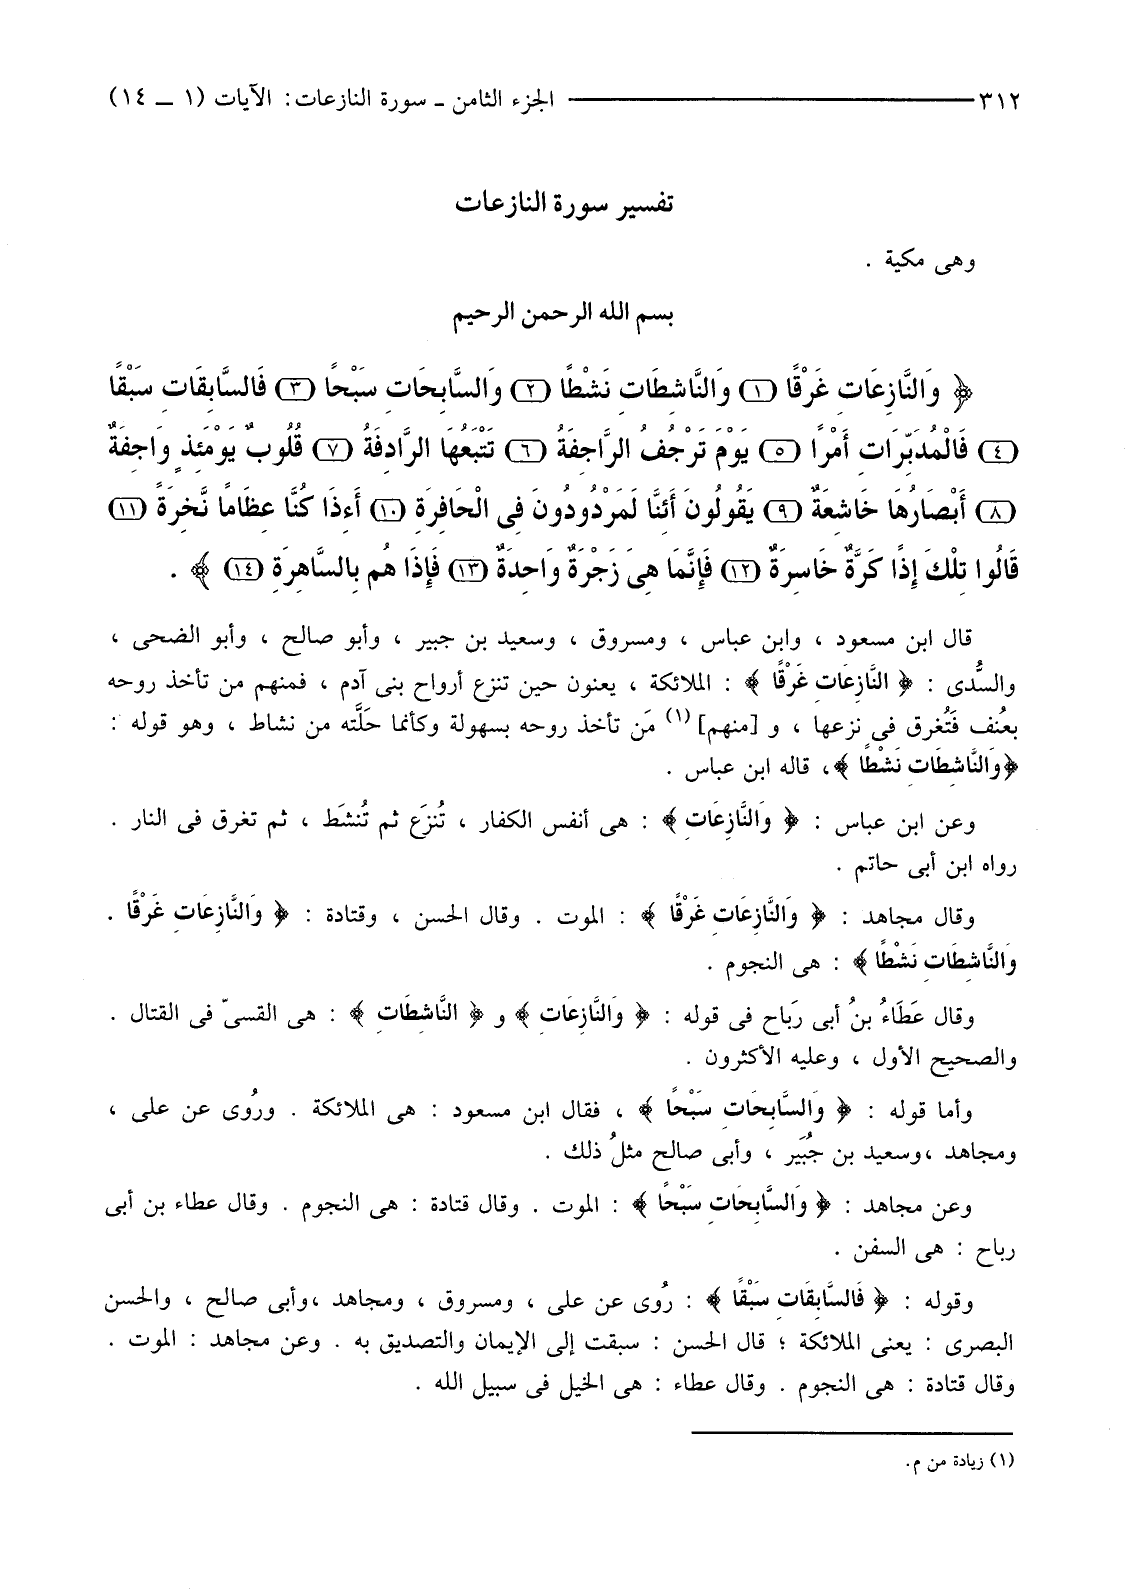 ٣١٢ الجزء الثامن ـ سورة النازعات: الآيات (١ ـ ١٤)
تفسير سورة النازعات
وهى مكية .
بسم الله الرحمن الرحيم
﴿ وَالنَّازِعَاتِ غَرْقًا (١) وَالنَّاشِطَاتِ نَشْطًا (٢) وَالسَّابِحَاتِ سَبْحًا (٣) فَالسَّابِقَاتِ سَبْقًا
(٤) فَالْمُدَبِّرَاتِ أَمْرًا (٥) يَوْمَ تَرْجُفُ الرَّاجِفَةُ (٦) تَتْبَعُهَا الرَّادِفَةُ (٧) قُلُوبٌ يَوْمَئِذٍ وَاجِفَةٌ
(٨) أَبْصَارُهَا خَاشِعَةٌ (٩) يَقُولُونَ أَئِنَّا لَمَرْدُودُونَ فِى الْحَافِرَةِ (١٠) أَءِذَا كُنَّا عِظَامًا نَّخِرَةً (١١)
قَالُوا تِلْكَ إِذًا كَرَّةٌ خَاسِرَةٌ (١٢) فَإِنَّمَا هِىَ زَجْرَةٌ وَاحِدَةٌ (١٣) فَإِذَا هُم بِالسَّاهِرَةِ (١٤) ﴾ .
قال ابن مسعود ، وابن عباس ، ومسروق ، وسعيد بن جبير ، وأبو صالح ، وأبو الضحى ،
والسُّدى : ﴿ النَّازِعَاتِ غَرْقًا ﴾ : الملائكة ، يعنون حين تنزع أرواح بنى آدم ، فمنهم من تأخذ روحه
بعُنف فَتُغرق فى نزعها ، و [منهم] (١) مَن تأخذ روحه بسهولة وكأنما حَلَّته من نشاط ، وهو قوله :
﴿وَالنَّاشِطَاتِ نَشْطًا ﴾، قاله ابن عباس .
وعن ابن عباس : ﴿ وَالنَّازِعَاتِ ﴾ : هى أنفس الكفار ، تُنزَع ثم تُنشَط ، ثم تغرق فى النار .
رواه ابن أبى حاتم .
وقال مجاهد : ﴿ وَالنَّازِعَاتِ غَرْقًا ﴾ : الموت . وقال الحسن ، وقتادة : ﴿ وَالنَّازِعَاتِ غَرْقًا .
وَالنَّاشِطَاتِ نَشْطًا ﴾ : هى النجوم .
وقال عَطَاءُ بنُ أبى رَباح فى قوله : ﴿ وَالنَّازِعَاتِ ﴾ و ﴿ النَّاشِطَاتِ ﴾ : هى القسىّ فى القتال .
والصحيح الأول ، وعليه الأكثرون .
وأما قوله : ﴿ وَالسَّابِحَاتِ سَبْحًا ﴾ ، فقال ابن مسعود : هى الملائكة . ورُوى عن على ،
ومجاهد ،وسعيد بن جُبَير ، وأبى صالح مثلُ ذلك .
وعن مجاهد : ﴿ وَالسَّابِحَاتِ سَبْحًا ﴾ : الموت . وقال قتادة : هى النجوم . وقال عطاء بن أبى
رباح : هى السفن .
وقوله : ﴿ فَالسَّابِقَاتِ سَبْقًا ﴾ : رُوى عن على ، ومسروق ، ومجاهد ،وأبى صالح ، والحسن
البصرى : يعنى الملائكة ؛ قال الحسن : سبقت إلى الإيمان والتصديق به . وعن مجاهد : الموت .
وقال قتادة : هى النجوم . وقال عطاء : هى الخيل فى سبيل الله .
(١) زيادة من م.